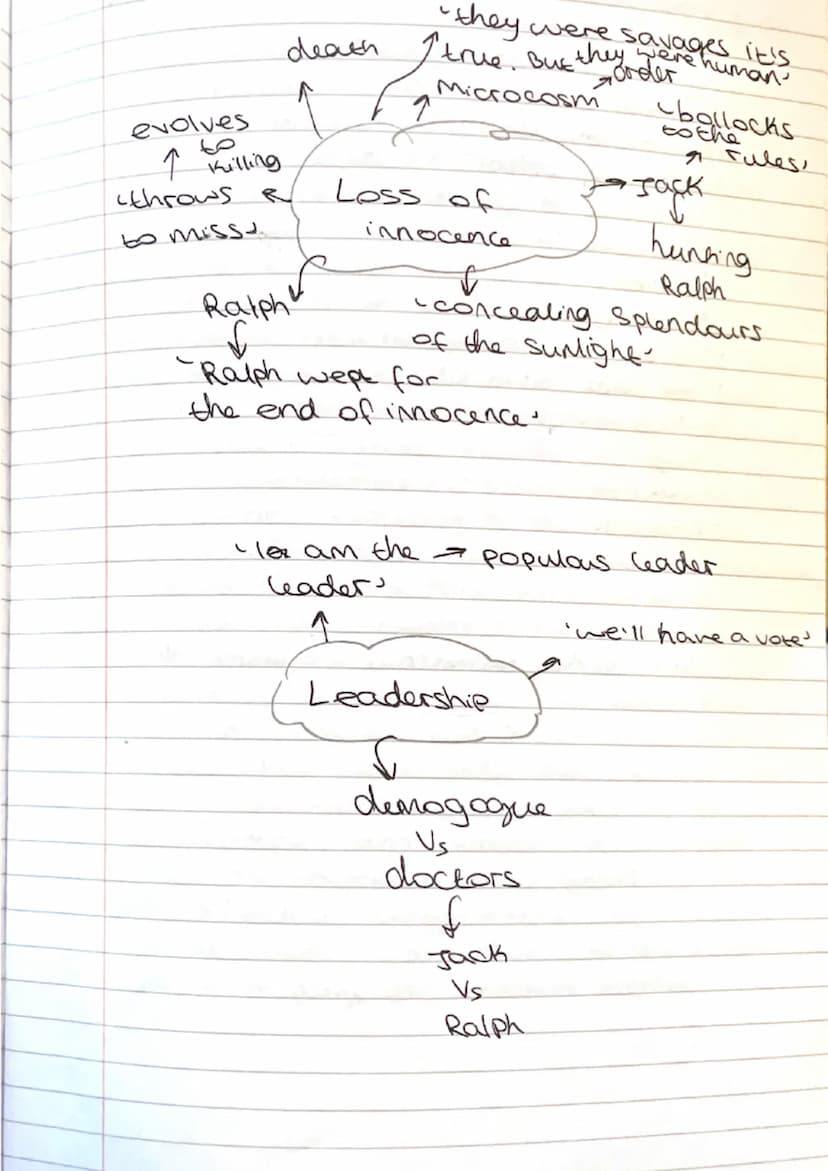 'they were savages it's
true. But they were human'
order
Microcosm
death
evolves
to
killing
'throws
to miss'
Loss of
innocence
'bollocks
to the
rules'
Jack
hunting
Ralph
Ralph
'Ralph wept for
the end of innocence'
'concealing splendours
of the sunlight'
am the → populous leader
leader'
'we'll have a vote'
Leadership
demogogue
Vs
doctors
Jack
Vs
Ralph